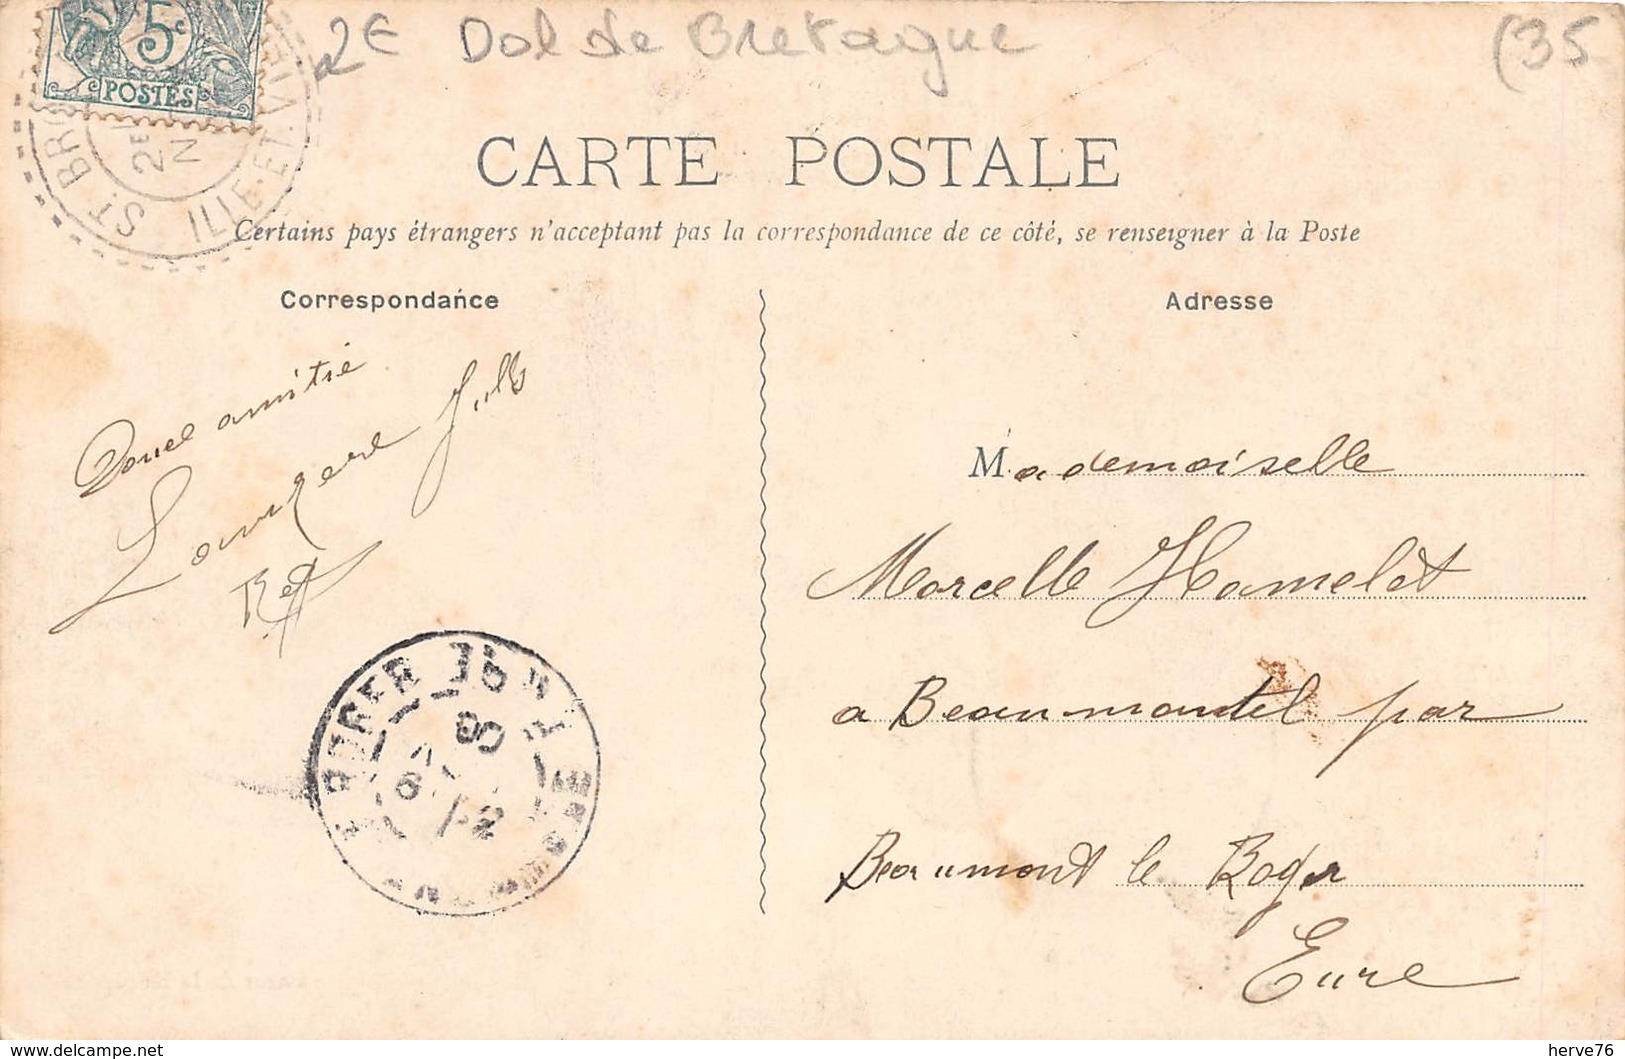 5c
POSTES
ST. BR
ILLE-ET-VI
2E Dol de Bretagne (35
CARTE POSTALE
Certains pays étrangers n'acceptant pas la correspondance de ce côté, se renseigner à la Poste
Correspondance
Adresse
Douce amitié
Mademoiselle
Marcelle Hamelet
a Beaumontel par
Beaumont le Roger
Eure
delcampe.net
herve76